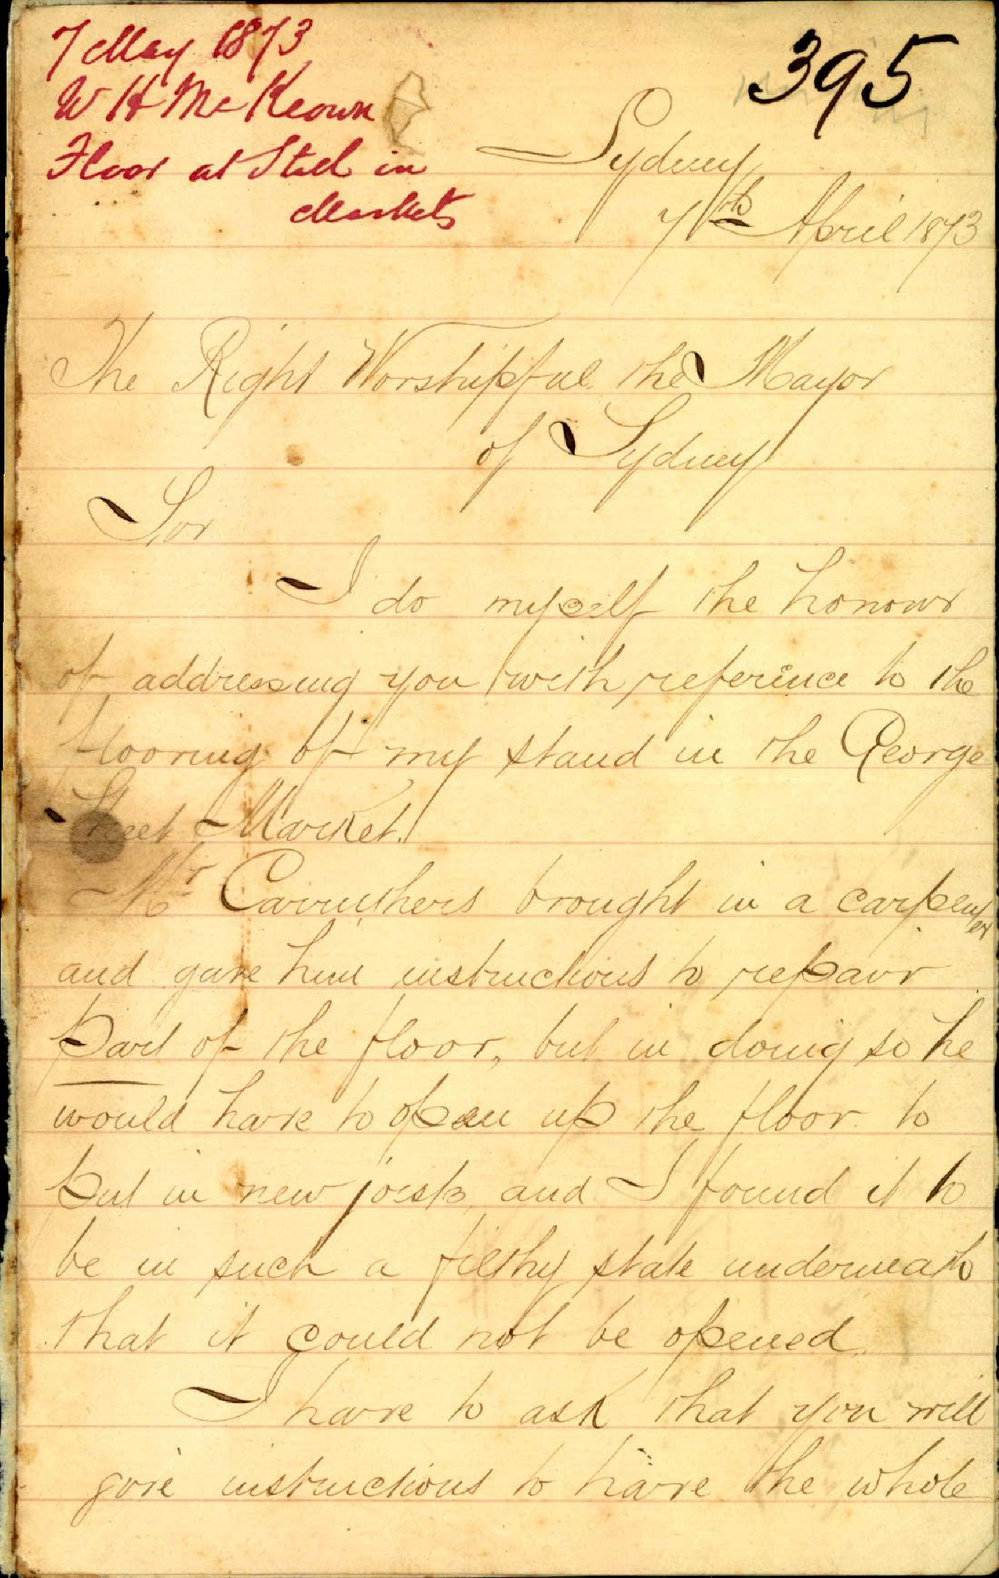 7 May 1873
W H McKeown
Floor at Stall in
Markets
395
Sydney
7th April 1873
The Right Worshipful the Mayor
of Sydney
Sir
I do myself the honour
of addressing you with reference to the
flooring of my stand in the George
Street Market.
Mr Carruthers brought in a carpenter
and gave him instructions to repair
part of the floor, but in doing so he
would have to open up the floor to
put in new joists, and I found it to
be in such a filthy state underneath
that it could not be opened.
I have to ask that you will
give instructions to have the whole